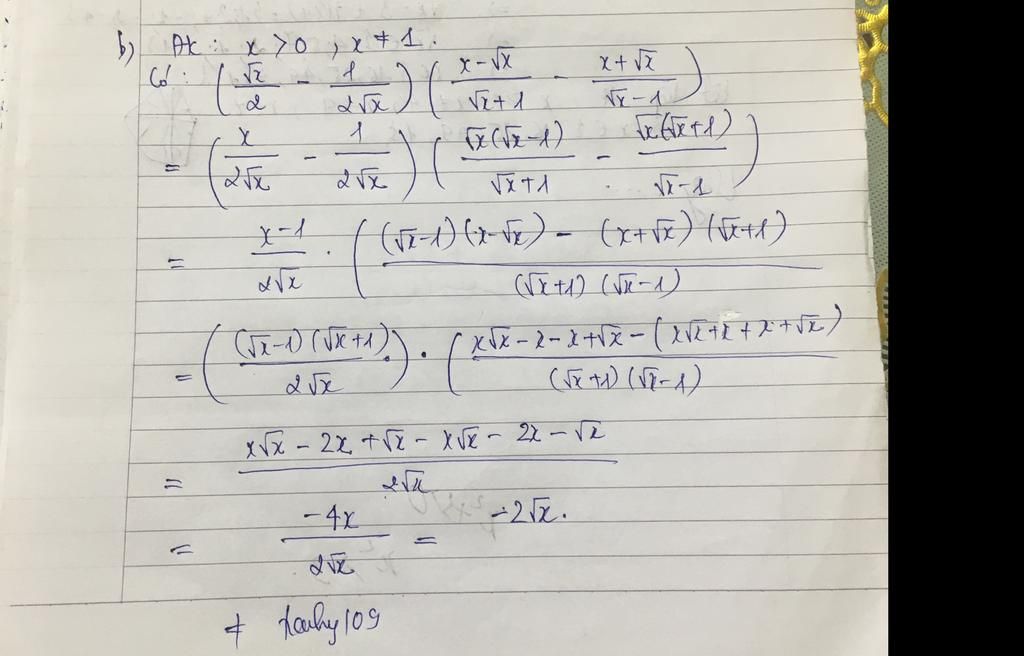 b) Đk: x > 0, x ≠ 1.
Có: (√x/2 - 1/2√x) (x-√x/√x+1 - x+√x/√x-1)
= (x/2√x - 1/2√x) (√x(√x-1)/√x+1 - √x(√x+1)/√x-1)
= x-1/2√x . ((√x-1)(x-√x) - (x+√x)(√x+1)/(√x+1)(√x-1))
= ((√x-1)(√x+1)/2√x) . (x√x-x-x+√x-(x√x+x+x+√x)/(√x+1)(√x-1))
= x√x - 2x + √x - x√x - 2x - √x/2√x
= -4x/2√x = -2√x.